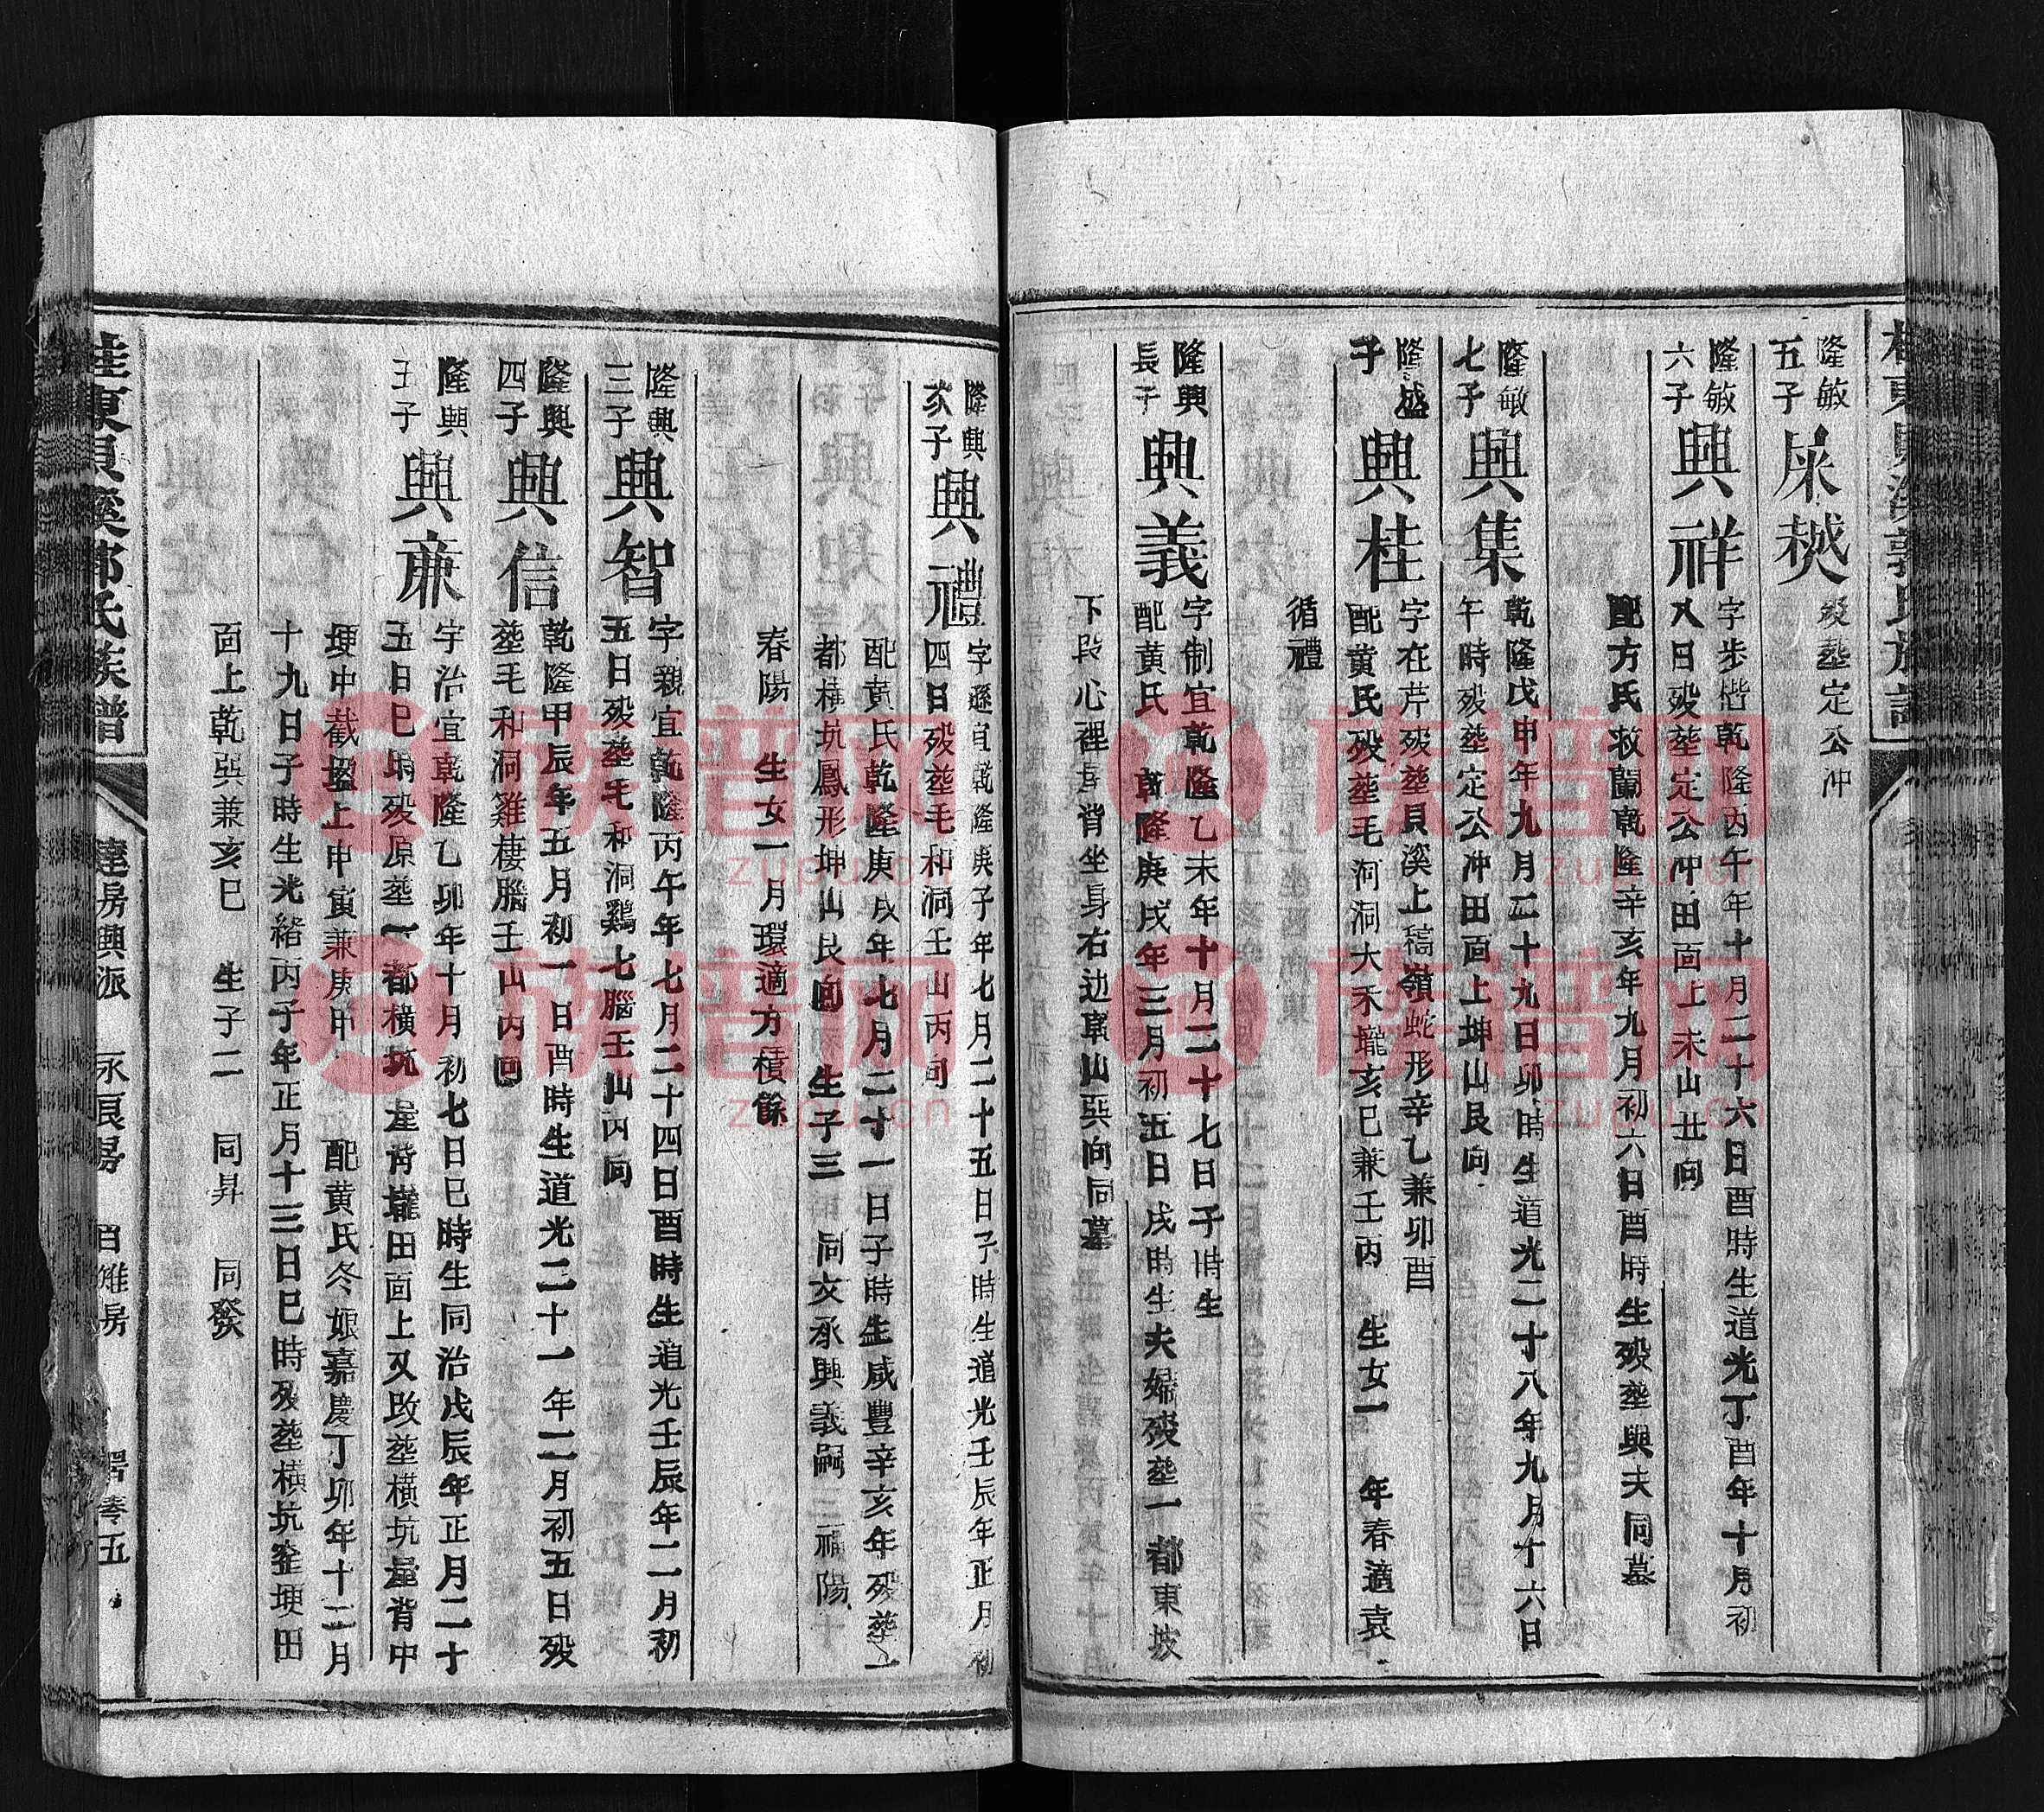 隆敏
五子
杘㷰
殁塟定公冲
隆敏
六子
興祥
字步楷乾隆丙午年十月二十六日酉時生道光丁酉年十月初
八日殁塟定公冲田面上未山丑向
配方氏救蘭乾隆辛亥年九月初六日酉時生殁塟與夫同墓
隆敏
七子
興集
乾隆戊申年九月二十九日卯時生道光二十八年九月十六日
午時殁塟定公冲田面上坤山艮向
隆盛
子
興桂
字在芹殁塟貝溪上稿嶺蛇形辛乙兼卯酉
配黄氏殁塟毛洞洞大禾壠亥巳兼壬丙 生女一 年春適袁
循禮
隆興
長子
興義
字制宜乾隆乙未年十月二十七日子時生
配黄氏 乾隆庚戌年三月初五日戌時生夫婦殁塟一都東坡
下段心裡 背坐身右边草山巽向同墓
隆興
次子
興禮
字遜宜乾隆庚子年七月二十五日子時生道光壬辰年正月初
四日殁塟毛和洞壬山丙向
配黄氏乾隆庚戌年七月二十一日子時生咸豐辛亥年殁塟一
都橫坑鳳形坤山艮向 生子三 同文承興義嗣 三福陽
春陽 生女一月環適方積餘
隆興
三子
興智
字親宜乾隆丙午年七月二十四日酉時生道光壬辰年二月初
五日殁塟毛和洞鷄七腦壬山丙向
隆興
四子
興信
乾隆甲辰年五月初一日酉時生道光二十一年二月初五日殁
塟毛和洞雞棲腦壬山丙向
隆興
五子
興亷
字治宜乾隆乙卯年十月初七日巳時生同治戊辰年正月二十
五日巳時殁原塟一都橫坑屋背壠田面上又改塟橫坑屋背中
埂中截塭上申寅兼庚甲 配黄氏冬娘嘉慶丁卯年十二月
十九日子時生光緒丙子年正月十三日巳時殁塟橫坑窐埂田
面上乾巽兼亥巳 生子二 同昇 同發
桂東貝溪郭氏族譜
達房興派 永良房 日雅房
卷五
族譜网
zupu.cn
族譜网
zupu.cn
族譜网
zupu.cn
族譜网
zupu.cn